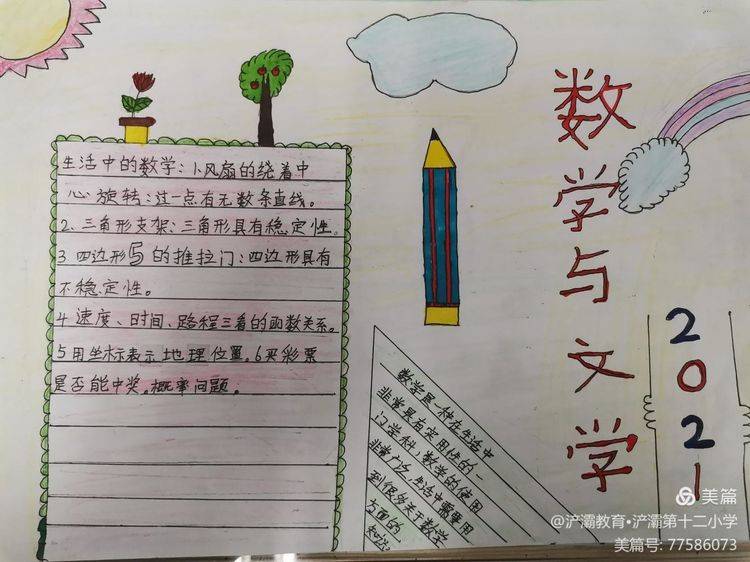 生活中的数学：1、风扇的绕着中
心旋转：过一点有无数条直线。
2、三角形支架：三角形具有稳定性。
3 四边形的推拉门：四边形具有
不稳定性。
4 速度、时间、路程三者的函数关系。
5 用坐标表示地理位置。6 买彩票
是否能中奖。概率问题。
数学是一种在生活中
非常具有实用性的一
门学科，数学的使用
非常广泛，生活中需要用
到很多关于数学
方面的
知识。
数学与文学
2021
美篇
@浐灞教育•浐灞第十二小学
美篇号: 77586073